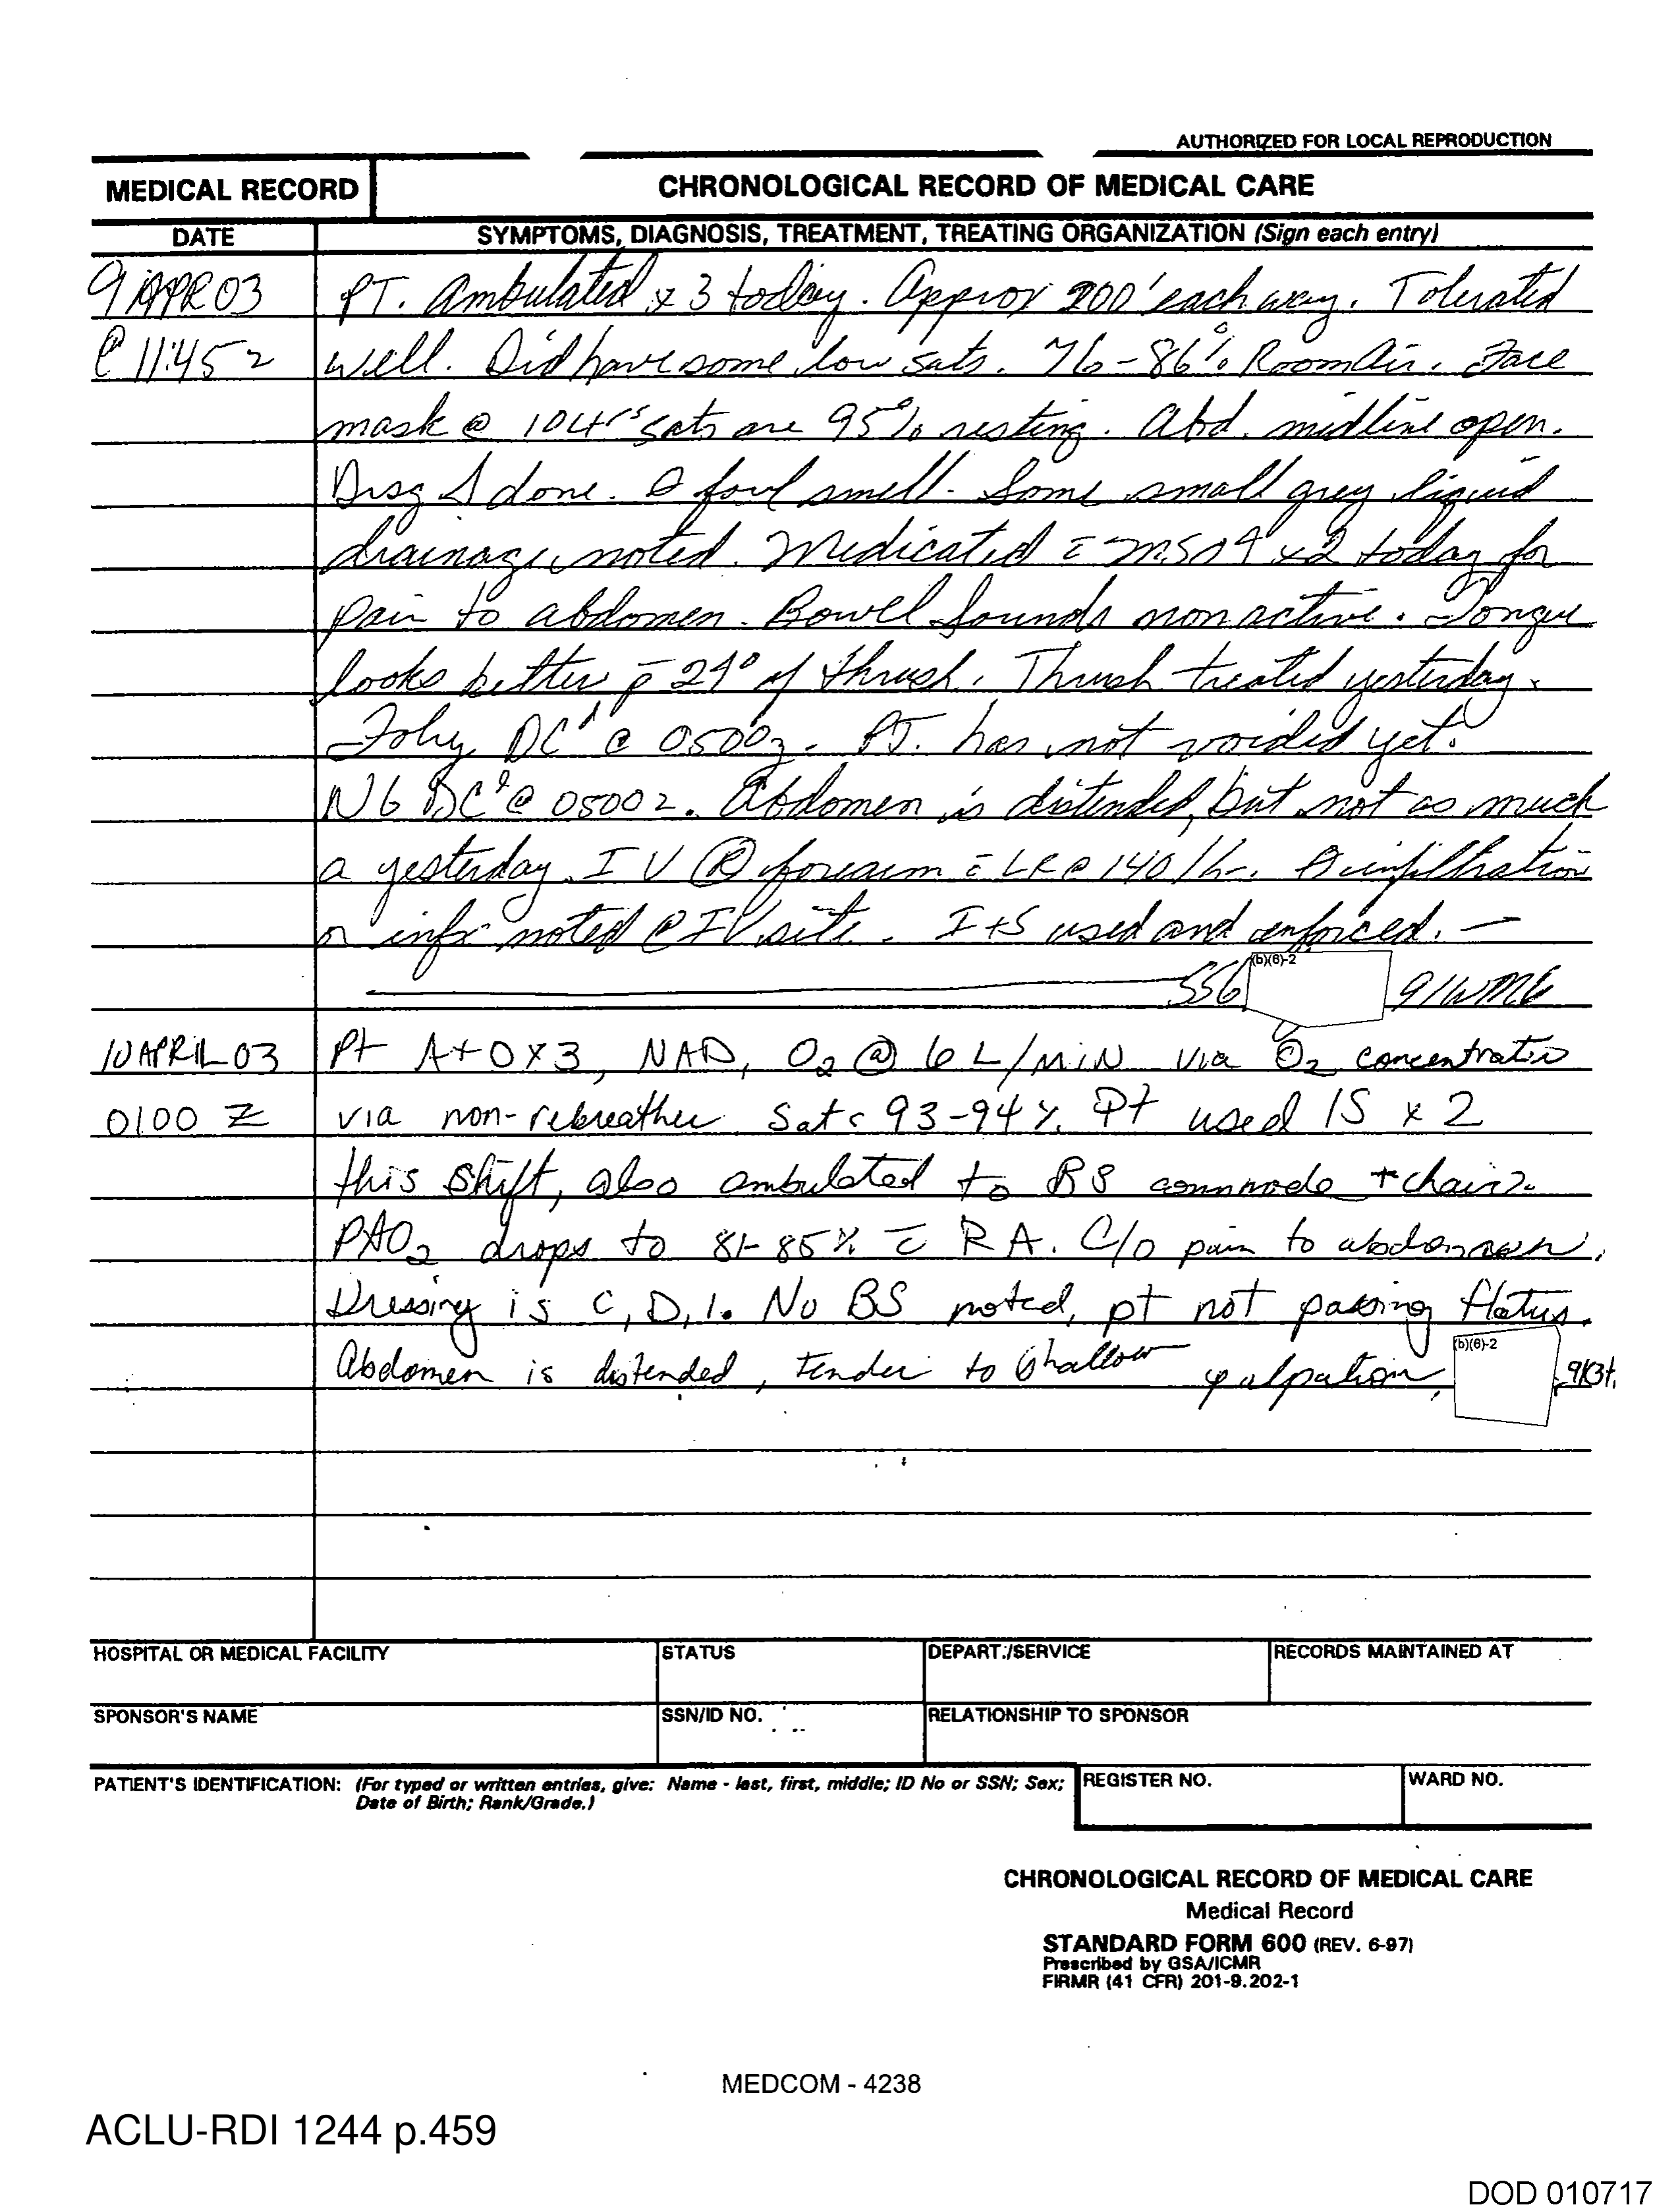 AUTHORIZED FOR LOCAL REPRODUCTION
MEDICAL RECORD
CHRONOLOGICAL RECORD OF MEDICAL CARE
DATE
SYMPTOMS, DIAGNOSIS, TREATMENT, TREATING ORGANIZATION (Sign each entry)
9 APR 03 PT. Ambulated x 3 today. Approx 200' each way. Tolerated
@ 11:45 z well. Did have some low sats. 76-86% Room Air. Face
mask @ sats are 95% resting. Abd. midline open.
Drsg Δ done. Ø foul smell. Some small grey liquid
drainage noted. Medicated c̄ MSO4 x2 today for
pain to abdomen. Bowel sounds non active. Tongue
looks better p̄ 24° of thrush. Thrush treated yesterday.
Foley DC'd @ 0500z. PT. has not voided yet.
NG DC'd @ 0500z. Abdomen is distended, but not as much
a yesterday. IV Ⓡ forearm c̄ LR @ 140/hr. Ø infiltration
or infx noted @ IV site. I+S used and enforced.
(b)(6)-2
SSG 91WM6
10 APRIL 03 Pt A+O x 3, NAD, O2 @ 6 L/MIN via O2 concentrator
0100 Z via non-rebreather. Sats 93-94%. Pt used IS x 2
this shift, also ambulated to BS commode + chair.
PAO2 drops to 81-85% c̄ RA. C/o pain to abdomen.
Dressing is C, D, I. No BS noted, pt not passing flatus.
Abdomen is distended, tender to shallow palpation.
(b)(6)-2
HOSPITAL OR MEDICAL FACILITY
STATUS
DEPART./SERVICE
RECORDS MAINTAINED AT
SPONSOR'S NAME
SSN/ID NO.
RELATIONSHIP TO SPONSOR
PATIENT'S IDENTIFICATION: (For typed or written entries, give: Name - last, first, middle; ID No or SSN; Sex;
Date of Birth; Rank/Grade.)
REGISTER NO.
WARD NO.
CHRONOLOGICAL RECORD OF MEDICAL CARE
Medical Record
STANDARD FORM 600 (REV. 6-97)
Prescribed by GSA/ICMR
FIRMR (41 CFR) 201-9.202-1
MEDCOM - 4238
ACLU-RDI 1244 p.459
DOD 010717